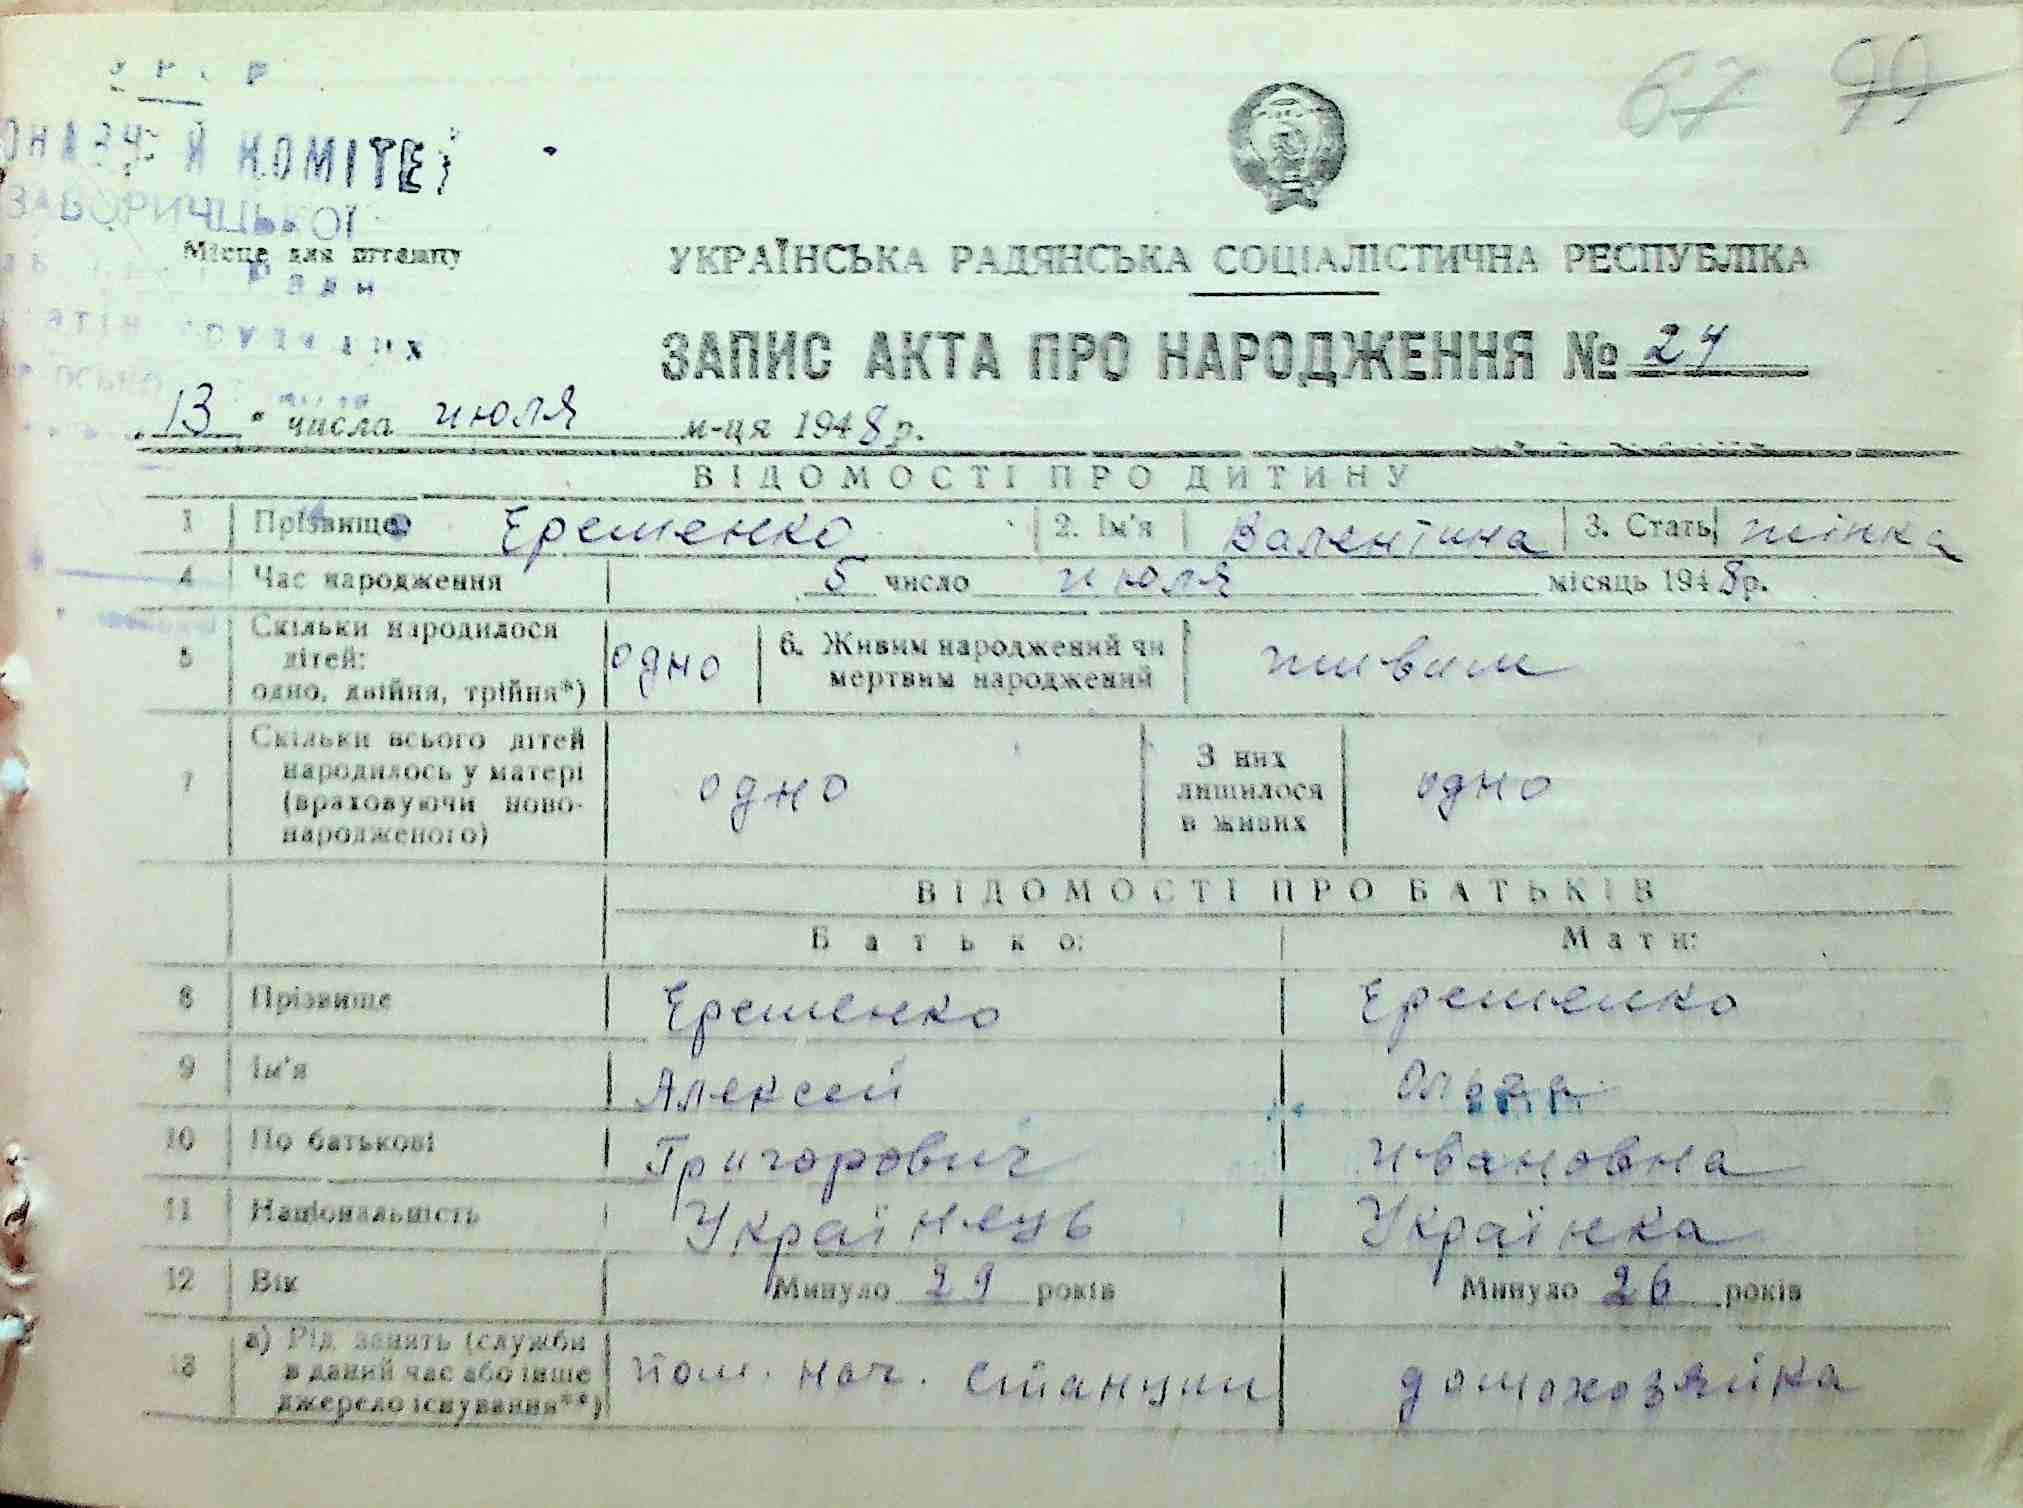 67 99
КОМІТЕТ
ЗАВОРИЧЦЬКОЇ
Місце для штампу
УКРАЇНСЬКА РАДЯНСЬКА СОЦІАЛІСТИЧНА РЕСПУБЛІКА
ЗАПИС АКТА ПРО НАРОДЖЕННЯ № 24
„13" числа июля м-ця 1948 р.
ВІДОМОСТІ ПРО ДИТИНУ
1 Прізвище Еременко 2. Ім'я Валентина 3. Стать жінка
4 Час народження 5 число июля місяць 1948 р.
5 Скільки народилося дітей: одно, двійня, трійня*) одно 6. Живим народжений чи мертвим народжений живим
7 Скільки всього дітей народилось у матері (враховуючи новонародженого) одно З них лишилося в живих одно
ВІДОМОСТІ ПРО БАТЬКІВ
Батько: Мати:
8 Прізвище Еременко Еременко
9 Ім'я Алексей Ольга
10 По батькові Григорович Ивановна
11 Національність Українець Українка
12 Вік Минуло 29 років Минуло 26 років
13 а) Рід занять (служби в даний час або інше джерело існування**) Пом. нач. станции домохозяйка